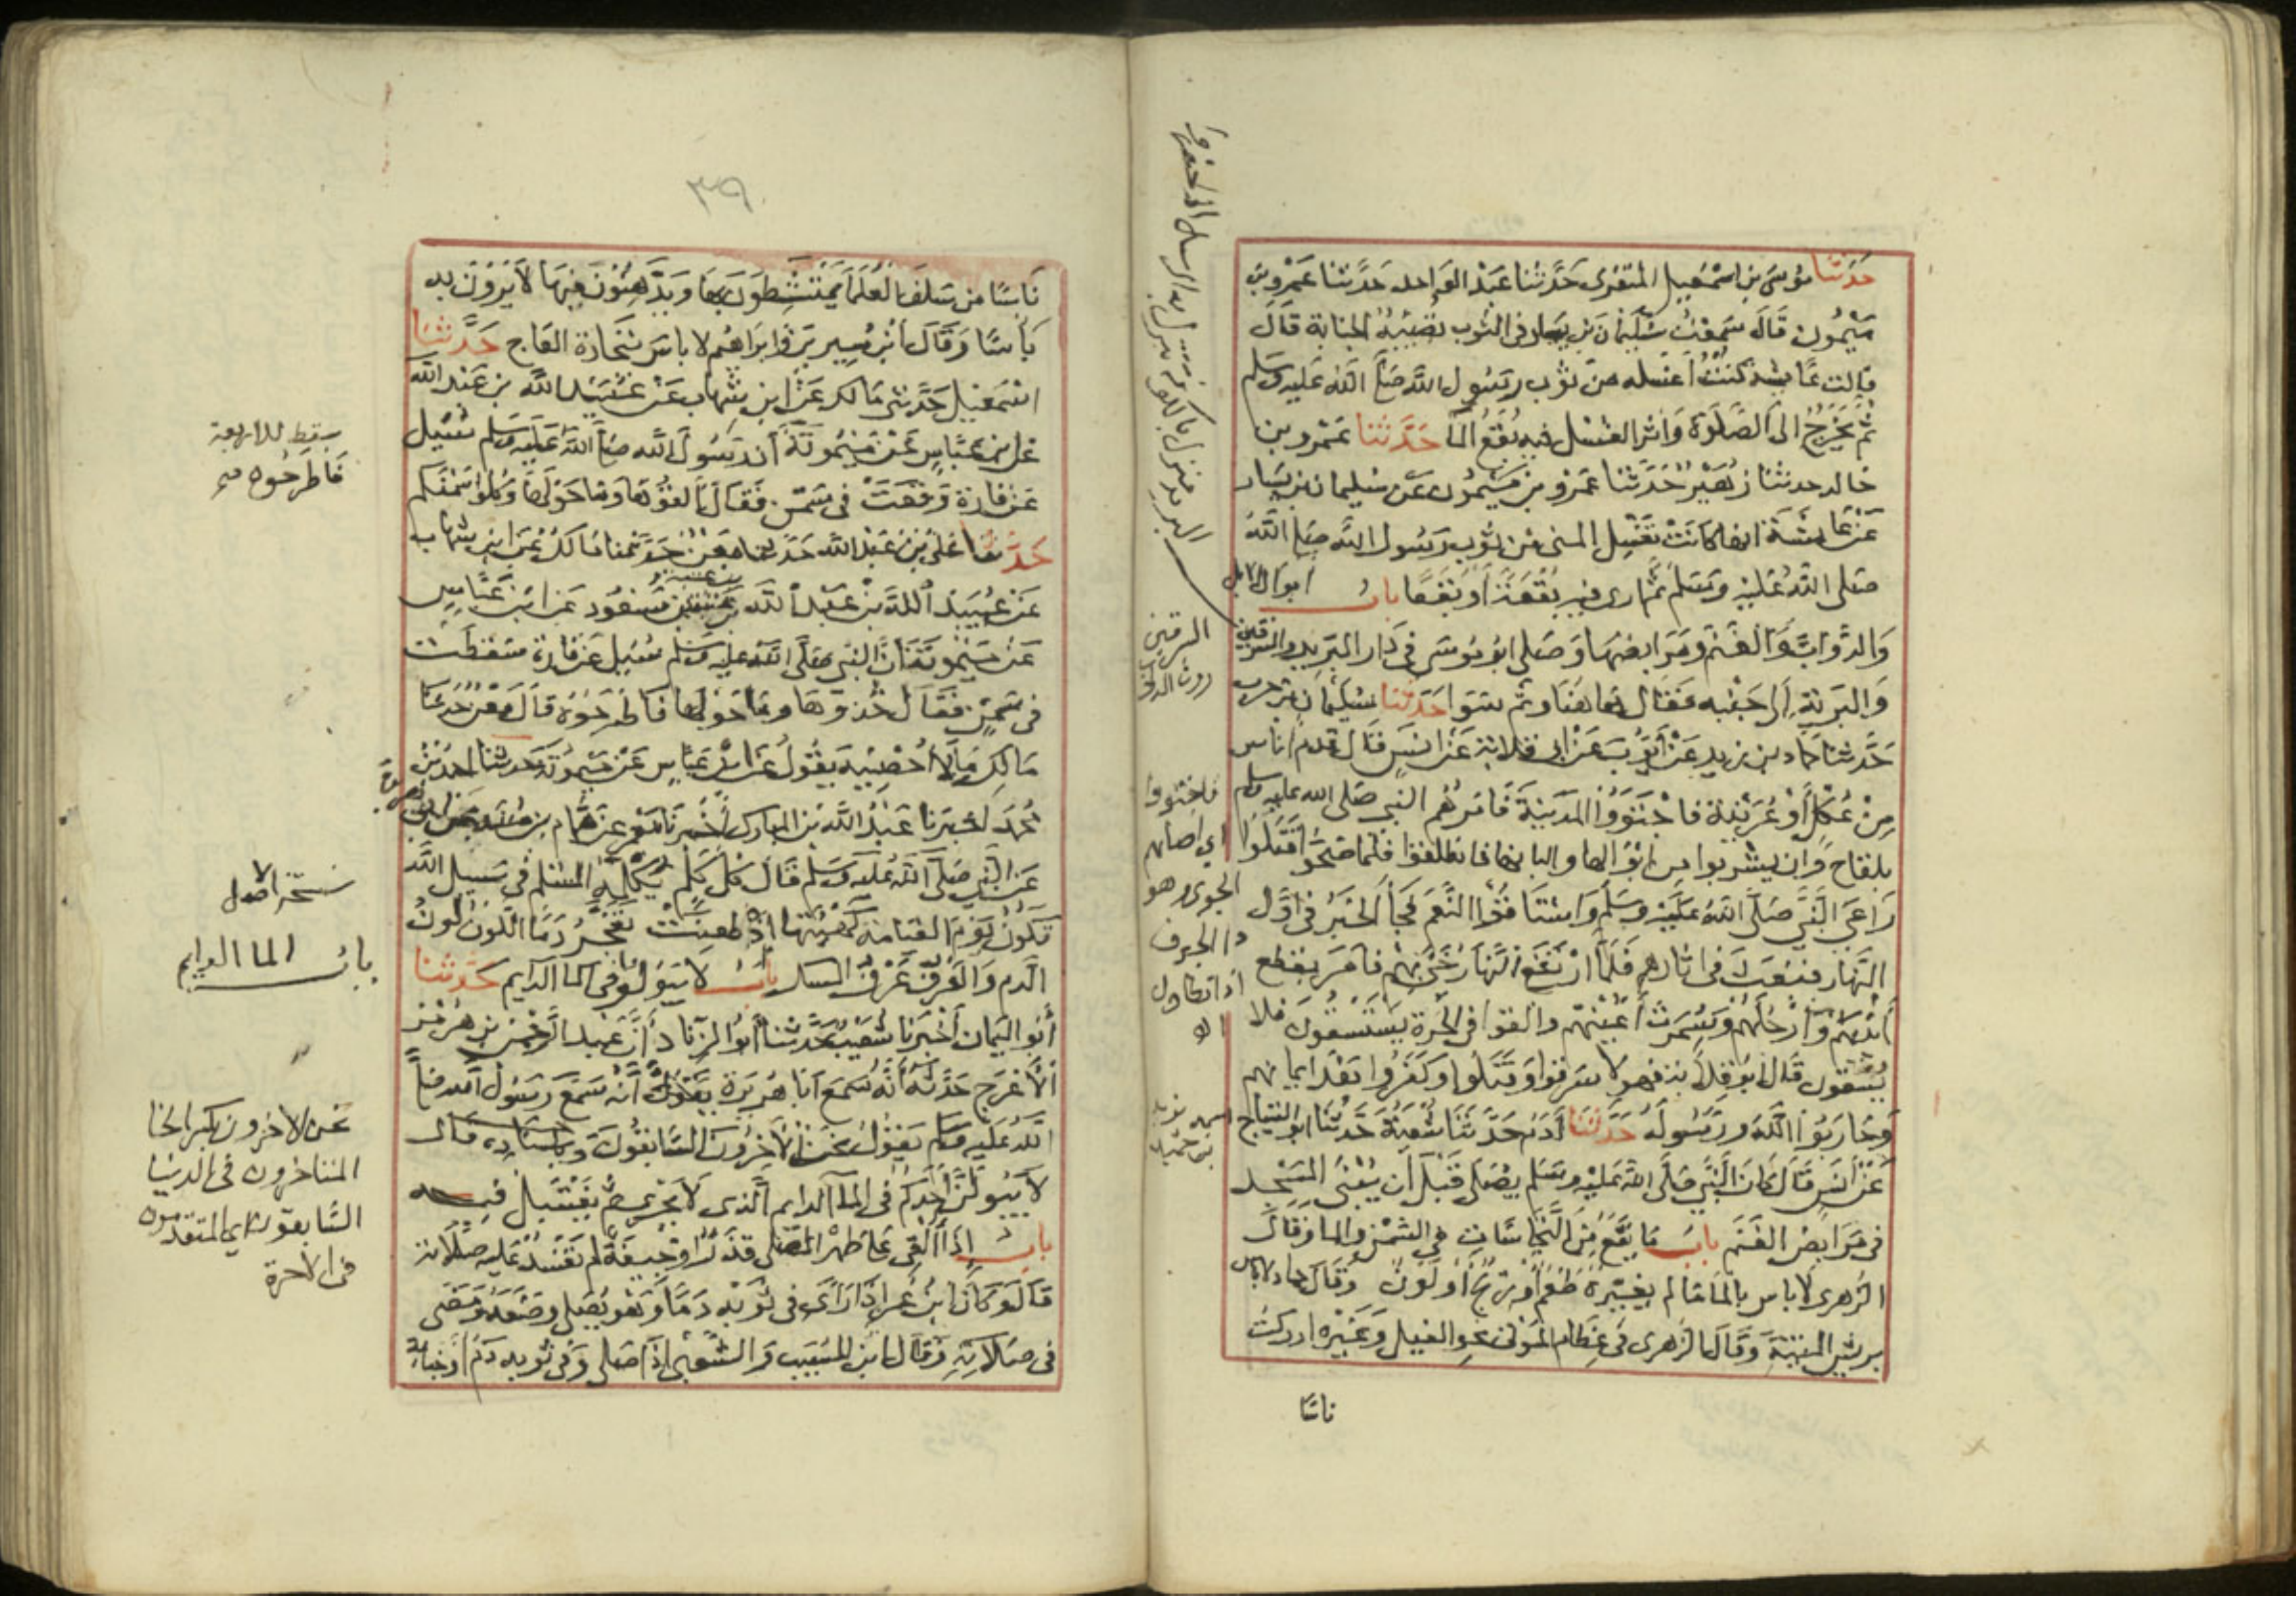 حدثنا موسى بن اسمعيل المنقرى حدثنا عبد الواحد حدثنا عمرو بن
ميمون قال سمعت سليمان بن يسار فى الثوب تصيبه الجنابة قال
قالت عايشة كنت أغسله من ثوب رسول الله صلى الله عليه وسلم
ثم يخرج الى الصلوة واثر الغسل فيه بقع الما حدثنا عمرو بن
خالد حدثنا زهير حدثنا عمرو بن ميمون عن سليمان بن يسار
عن عايشة انها كانت تغسل المنى من ثوب رسول الله صلى الله
صلى الله عليه وسلم ثم اراى فيه بقعة أو بقعا باب ابوال الابل
والدواب والغنم ومرابضها وصلى ابو موسى فى دار البريد والسرقين
والبرية الى جنبه فقال هاهنا وثم سوا حدثنا سليمان بن حرب
حدثنا حماد بن زيد عن أيوب عن ابى قلابة عن انس قال قدم اناس
من عكل أو عرينة فاجتووا المدينة فامرهم النبى صلى الله عليه وسلم
بلقاح وان يشربوا من ابوالها والبانها فانطلقوا فلما صحوا قتلوا
راعى النبى صلى الله عليه وسلم واستاقوا النعم فجأ الخبر فى اول
النهار فبعث فى اثارهم فلما ارتفع النهار جئ بهم فامر بقطع
أيديهم وأرجلهم وسمرت أعينهم والقوا فى الحرة يستسقون فلا
يسقون قال ابو قلابة فهولا سرقوا وقتلوا وكفروا بعد ايمانهم
وحاربوا الله ورسوله حدثنا أدم حدثنا شعبة حدثنا ابو التياح
عن أنس قال كان النبى صلى الله عليه وسلم يصلى قبل أن يبنى المسجد
فى مرابض الغنم باب ما يقع من النجاسات فى السمن والما وقال
الزهرى لا باس بالما ما لم يغيره طعم أو ريح أو لون وقال حماد لا باس
بريش الميتة وقال الزهرى فى عظام الموتى نحو الفيل وغيره ادركت
ناسا
السرقين
روث الدواب
فاجتووا
اى اصابهم
الجوى وهو
دا الجوف
اذا تطاول
٣٩
ناسا من سلف العلما يمتشطون بها ويدهنون فيها لا يرون به
بأسا وقال ابن سيرين وابراهيم لا باس بتجارة العاج حدثنا
اسمعيل حدثنى مالك عن ابن شهاب عن عبيد الله بن عبد الله
عن ابن عباس عن ميمونة أن رسول الله صلى الله عليه وسلم سئيل
عن فارة وقعت فى سمن فقال القوها وما حولها وكلوا سمنكم
حدثنا على بن عبد الله حدثنا معن حدثنا مالك عن ابن شهاب
عن عبيد الله بن عبد الله بن عتبة بن مسعود عن ابن عباس
عن ميمونة أن النبى صلى الله عليه وسلم سئيل عن فارة سقطت
فى سمن فقال خذوها وما حولها فاطرحوه قال معن حدثنا
مالك مالا أحصيه يقول عن ابن عباس عن ميمونة حدثنا احمد بن
محمد اخبرنا عبد الله بن المبارك أخبرنا معمر عن همام بن منبه عن ابى هريرة
عن النبى صلى الله عليه وسلم قال كل كلم يكلمه المسلم فى سبيل الله
تكون يوم القيامة كهيئتها اذ طعنت تفجر دما اللون لون
الدم والعرف عرف المسك باب لا يبولوا فى الما الدايم حدثنا
أبو اليمان أخبرنا شعيب حدثنا أبو الزناد أن عبد الرحمن بن هرمز
الأعرج حدثه أنه سمع ابا هريرة يقول أنه سمع رسول الله صلى
الله عليه وسلم يقول نحن الأخرون السابقون وباسناده قال
لا يبولن أحدكم فى الما الدايم الذى لا يجرى ثم يغتسل فيه
باب إذا ألقى على ظهر المصلى قذر أو جيفة لم تفسد عليه صلاته
قال وكان ابن عمر إذا رأى فى ثوبه دما وهو يصلى وضعه ومضى
فى صلاته وقال ابن المسيب والشعبى إذا صلى وفى ثوبه دم أو جنابة
سقط للاربعة
فاطرحوه
نسخة الاصل
باب الما الدايم
نحن الاخرون بكسر الخا
المتاخرون فى الدنيا
السابقون اى المتقدمون
فى الاخرة